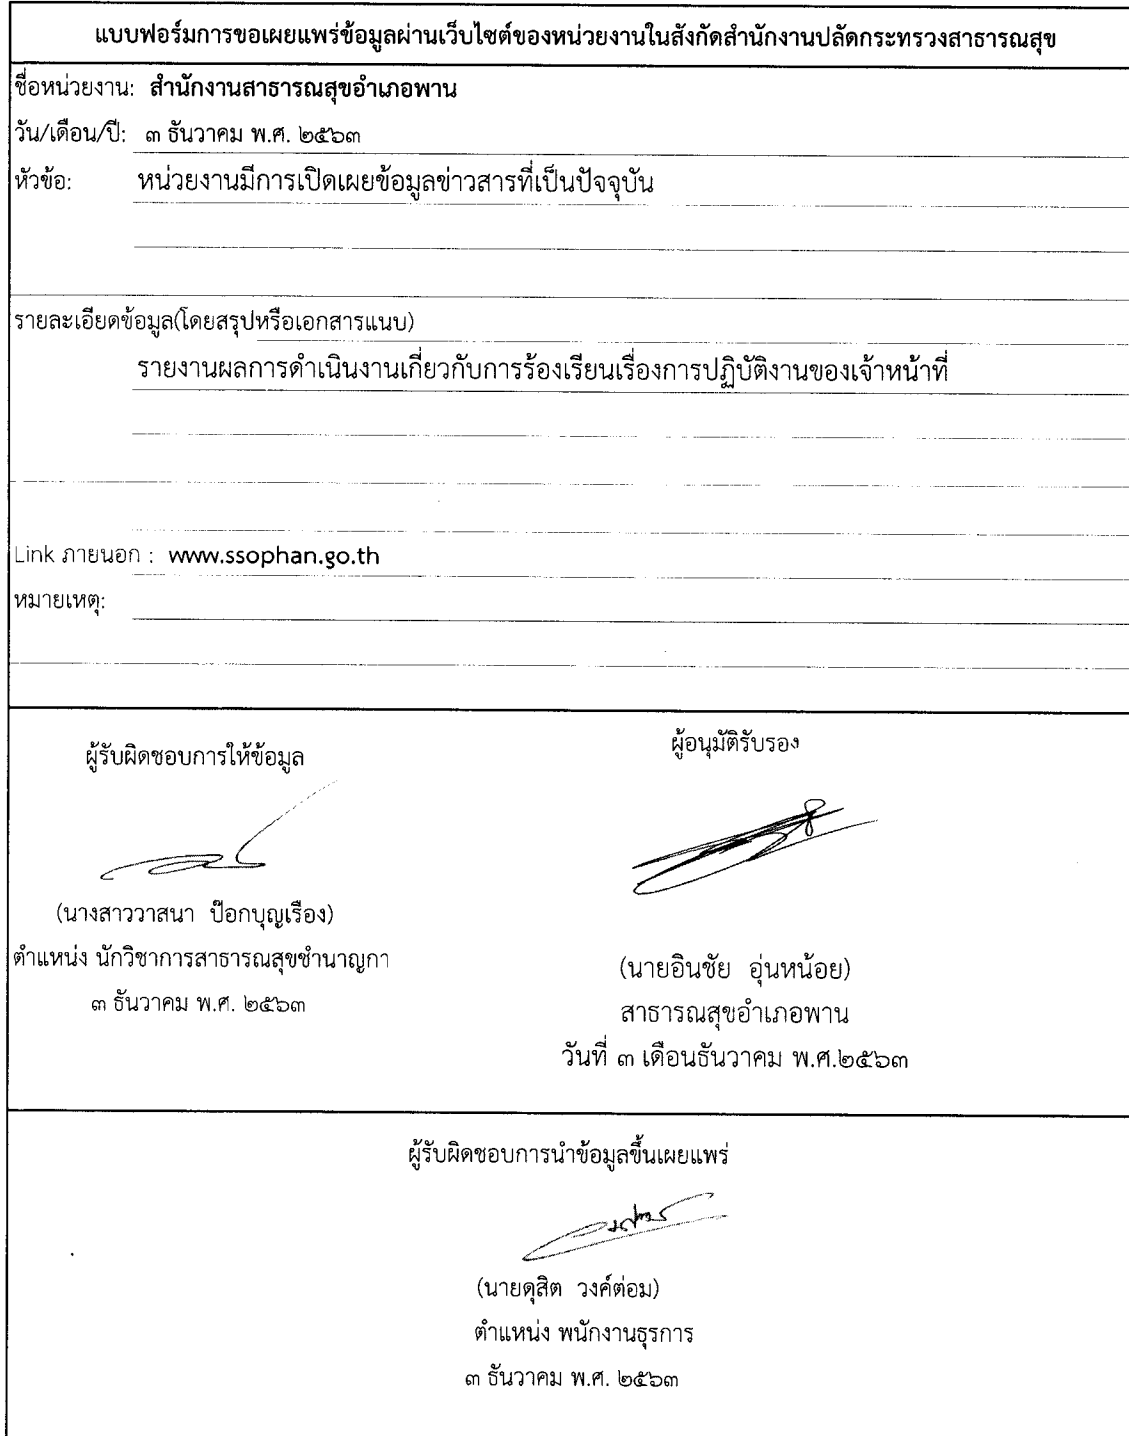 แบบฟอร์มการขอเผยแพร่ข้อมูลผ่านเว็บไซต์ของหน่วยงานในสังกัดสำนักงานปลัดกระทรวงสาธารณสุข
ชื่อหน่วยงาน: สำนักงานสาธารณสุขอำเภอพาน
วัน/เดือน/ปี: ๓ ธันวาคม พ.ศ. ๒๕๖๓
หัวข้อ: หน่วยงานมีการเปิดเผยข้อมูลข่าวสารที่เป็นปัจจุบัน
รายละเอียดข้อมูล(โดยสรุปหรือเอกสารแนบ)
รายงานผลการดำเนินงานเกี่ยวกับการร้องเรียนเรื่องการปฏิบัติงานของเจ้าหน้าที่
Link ภายนอก : www.ssophan.go.th
หมายเหตุ:
ผู้รับผิดชอบการให้ข้อมูล
(นางสาววาสนา ป๊อกบุญเรือง)
ตำแหน่ง นักวิชาการสาธารณสุขชำนาญกา
๓ ธันวาคม พ.ศ. ๒๕๖๓
ผู้อนุมัติรับรอง
(นายอินชัย อุ่นหน้อย)
สาธารณสุขอำเภอพาน
วันที่ ๓ เดือนธันวาคม พ.ศ.๒๕๖๓
ผู้รับผิดชอบการนำข้อมูลขึ้นเผยแพร่
(นายดุสิต วงค์ต่อม)
ตำแหน่ง พนักงานธุรการ
๓ ธันวาคม พ.ศ. ๒๕๖๓